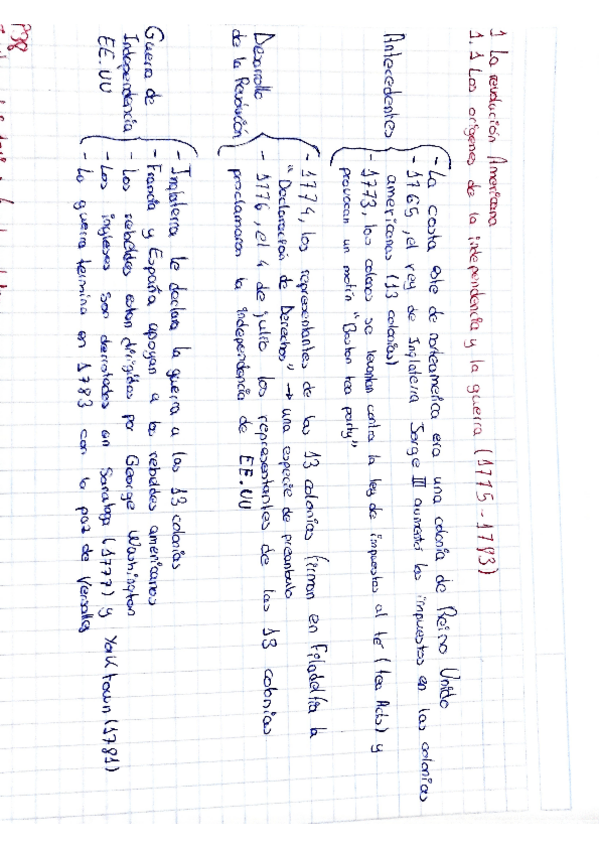 1 La revolución Americana
1.1 Los orígenes de la independencia y la guerra (1775-1783)
Antecedentes
- La costa este de norteamerica era una colonia de Reino Unido
- 1765, el rey de Inglaterra Jorge III aumentó los impuestos en las colonias
americanas (13 colonias)
- 1773, los colonos se levantan contra la ley de impuestos al té (tea Acts) y
provocan un motín "Boston tea party"
Desarrollo
de la Revolución
- 1774, los representantes de las 13 colonias firman en Filadelfia la
"Declaración de Derechos" → una especie de preambulo
- 1776, el 4 de julio los representantes de las 13 colonias
proclamaron la independencia de EE.UU
Guerra de
Independencia
EE.UU
- Inglaterra le declara la guerra a las 13 colonias
- Francia y España apoyan a los rebeldes americanos
- Los rebeldes estan dirigidos por George Washington
- Los ingleses son derrotados en Saratoga (1777) y Yorktown (1781)
- La guerra termina en 1783 con la paz de Versalles